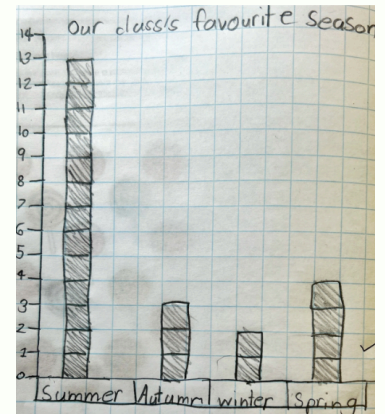 Our class's favourite Season
14
13
12
11
10
9
8
7
6
5
4
3
2
1
0
Summer Autumn winter Spring